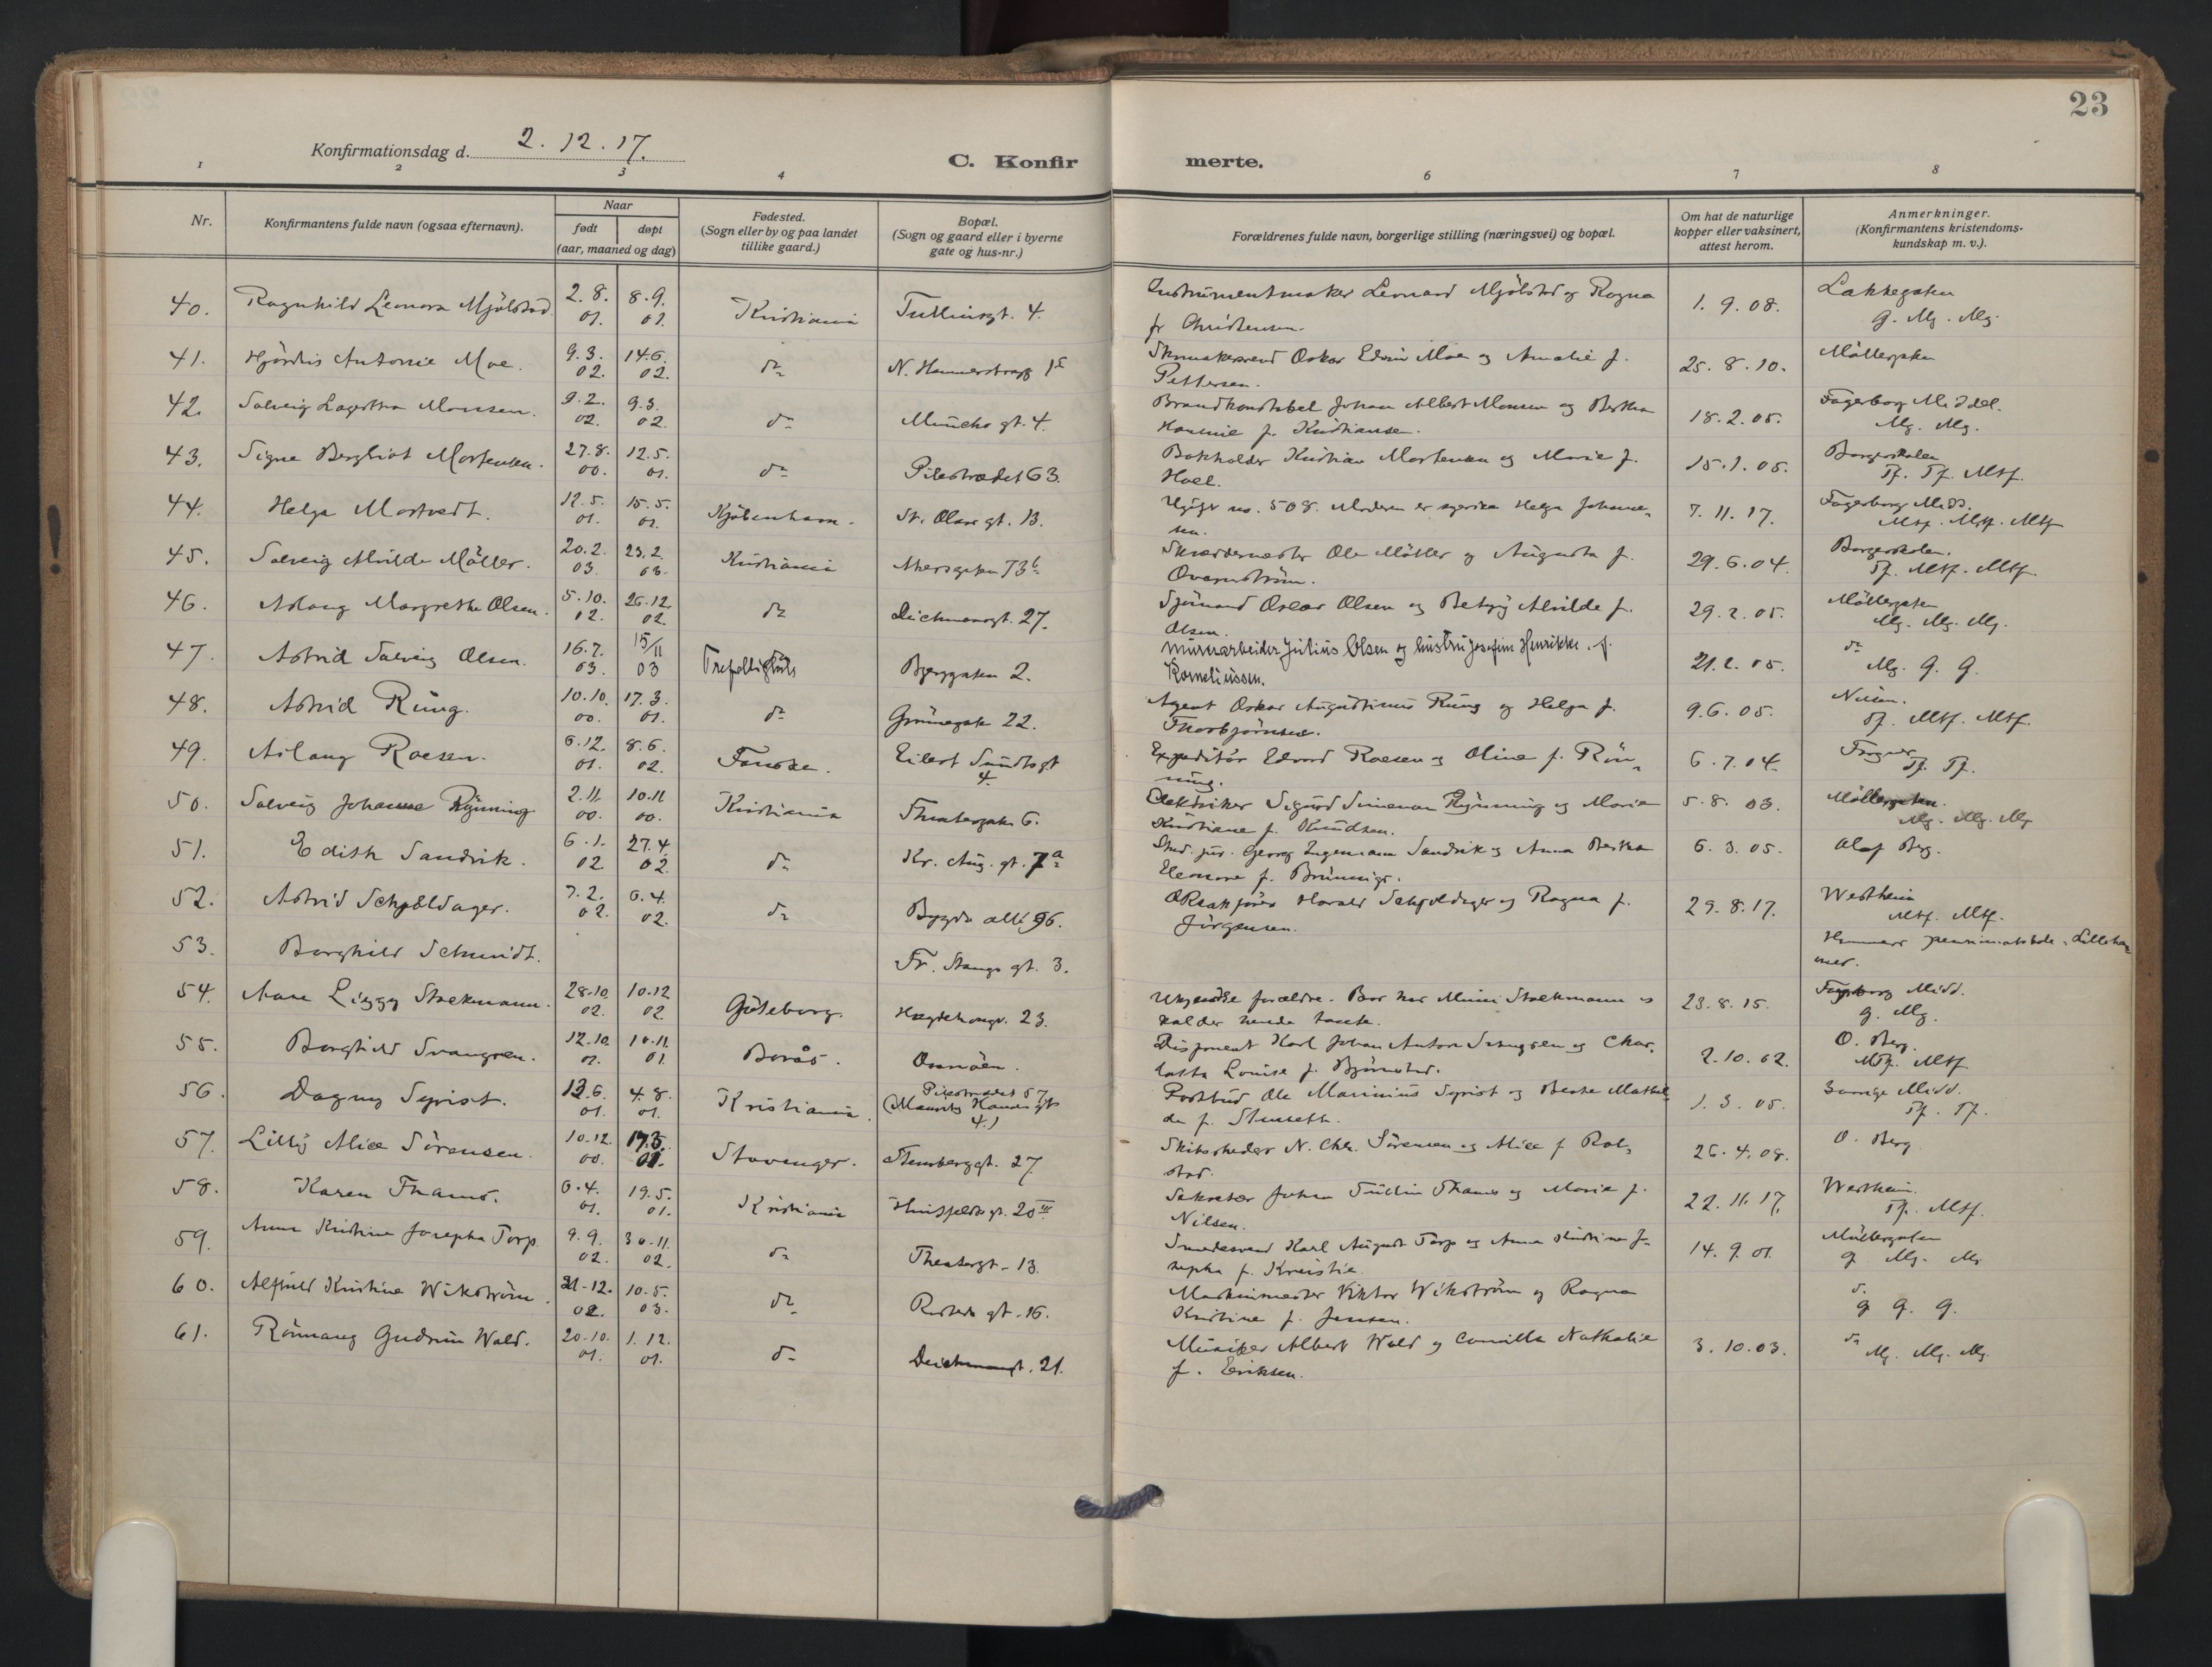 23
Konfirmationsdag d. 2. 12. 17.
C. Konfir
merte.
1 2 3 4 6 7 8
Nr.
Konfirmantens fulde navn (ogsaa efternavn).
Naar
født døpt
(aar, maaned og dag)
Fødested.
(Sogn eller by og paa landet
tillike gaard.)
Bopæl.
(Sogn og gaard eller i byerne
gate og hus-nr.)
Forældrenes fulde navn, borgerlige stilling (næringsvei) og bopæl.
Om hat de naturlige
kopper eller vaksinert,
attest herom.
Anmerkninger.
(Konfirmantens kristendoms-
kundskap m. v.).
40. Ragnhild Leonora Mjölstad 2. 8. 8. 9. Kristiania Tullinsgt. 4. Instrumentmaker Leonard Mjölstad og Ragna 1. 9. 08. Lakkegaten
01. 01. f. Christensen. g. Mg. Mg.
41. Hjördis Antonie Moe. 9. 3. 14.6. do N. Hammersborgg 1c Skomakersvend Oskar Edvin Moe og Amalie f. 25. 8. 10. Möllergaten
02. 02. Pettersen.
42. Solveig Lagertha Monsen. 9. 2. 9. 3. do Munchs gt. 4. Brandkonstabel Johan Albert Monsen og Bertha 18. 2. 05. Fagerborg Middel.
02. 02. f. Kristiansen. Mg. Mg.
43. Signe Bergliot Mortensen. 27. 8. 12. 5. do Pilestrædet 63. Bokholder Kristian Mortensen og Marie f. 15. 1. 05. Borgerskolen
00. 01. Hoel. Tf. Tf. Mtf.
44. Helga Mortvedt. 12. 5. 15. 5. Kjöbenhavn. St. Olavs gt. 13. 508. Moderen er Helga Johanse- 7. 11. 17. Fagerborg Midd.
01. 01. sen. Mtf. Mtf. Mtf
45. Solveig Alvilde Möller. 20. 2. 23. 2. Kristiania Akersgaten 73b Skræddermester Ole Möller og Augusta f. 29. 6. 04. Borgerskolen.
03. 03. Qvarnström. Tf. Mtf. Mtf.
46. Aslaug Margrethe Olsen. 5. 10. 26. 12. do Deichmansgt. 27. Sjömand Oscar Olsen og Betzy Alvilde f. 29. 2. 05. Möllergaten
02. 02. Olsen. Mg. Mg. Mg.
47. Astrid Solveig Olsen. 16. 7. 15/11 Trefoldigheds Bjerggaten 2. murarbeider Julius Olsen og hustru Josefine Henrikke f. 21. 2. 05. do
03. 03 Korneliussen. Mg. g. g.
48. Astrid Ring. 10. 10. 17. 3. do Grünnegate 22. Agent Oskar Augustinus Ring og Helga f. 9. 6. 05. Nissen.
00. 01. Thorbjørnsen. Tf. Mtf. Mtf.
49. Aslaug Roesen. 6. 12. 8. 6. Fauske. Eilert Sundtsgt Expeditör Edvard Roesen og Oline f. Rön- 6. 7. 04. Frogner
01. 02. 4. ning. Tf. Tf.
50. Solveig Johanne Rynning 2. 11. 10. 11 Kristiania Theatergaten 6. Elektriker Sigurd Simenson Rynning og Marie 5. 8. 03. Möllergaten.
00. 00. Kristiane f. Knudsen. Mg. Mg. Mg
51. Edith Sandvik. 6. 1. 27. 4. do Kr. Aug. gt. 7a Stud. jur. Georg Ingemann Sandvik og Anna Bertha 6. 3. 05. Olaf Berg.
02 02. Eleonore f. Brünnigs.
52. Astrid Schjoldager. 7. 2. 6. 4. do Bygdö allé 96. Harald Schjoldager og Ragna f. 29. 8. 17. Westheim
02. 02. Jörgensen. Mtf. Mtf.
53. Borghild Schmidt. Fr. Stangs gt. 3. Hammers pensionatskole, Lilleham-
mer.
54. Aase Lizzy Stockmann. 28. 10. 10. 12 Göteborg. Hægdehaugv. 23. Ukjendte forældre. Bor hos Mimi Stockmann og 23. 8. 15. Fagerborg Midd.
02. 02. kalder hende tante. g. Mg.
55. Borghild Svangren. 12. 10. 10. 11. Borås. Disponent Karl Johan Anton Svangren og Char- 2. 10. 02. O. Berg.
01. 01. lotta Louise f. Björnstad. Mtf. Mtf
56. Dagny Syrist. 13. 6. 4. 8. Kristiania. Pilestrædet 57 Postbud Ole Marinius Syrist og Berte Mathil- 1. 3. 05. Sarrige Midd.
01. 01. (Mauritz Hansens gt 4.) de f. Tf. Tf.
57. Lilly Alice Sörensen. 10. 12. 17.3. Stavanger. Stensberggt. 27 N. Chr. Sörensen og Alice f. Rol- 26. 4. 08. O. Berg
00. 01. stad.
58. Karen Thams. 6. 4. 19. 5. Kristiania Huitfeldts gt. 20III Sekretær Johan Tullin Thams og Marie f. 22. 11. 17. Westheim.
01. 01. Nilsen. Tf. Mtf.
59. Anna Kristine Josepha Torp. 9. 9. 30. 11. do Theatergt. 13. Smedesvend Karl August Torp og Anna Kristine Jo- 14. 9. 01. Möllergaten
02. 02. sepha f. g Mg. Mg
60. Alfhild Kristine Wikström. 21. 12. 10. 5. do gt. 16. Maskinmester Viktor Wikström og Ragna do
02. 03. Kristine f. Jensen. g g. g.
61. Rönnaug Gudrun Wold. 20. 10. 1. 12. do Deichmansgt. 21. Musiker Albert Wold og Camilla Nathalie 3. 10. 03. do
01. 01. f. Eriksen. Mg. Mg. Mg